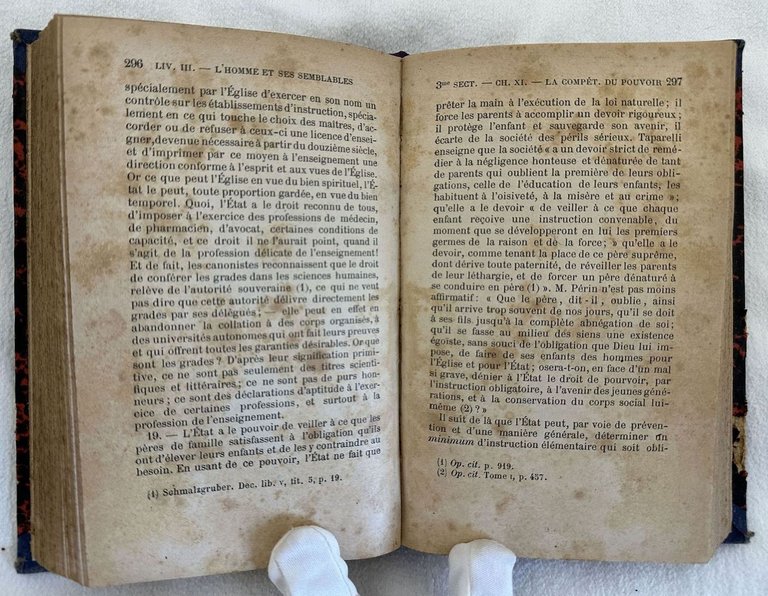 296 LIV. III. — L'HOMME ET SES SEMBLABLES
spécialement par l'Église d'exercer en son nom un
contrôle sur les établissements d'instruction, spécia-
lement en ce qui touche le choix des maîtres, d'ac-
corder ou de refuser à ceux-ci une licence d'ensei-
gner, devenue nécessaire à partir du douzième siècle,
et d'imprimer par ce moyen à l'enseignement une
direction conforme à l'esprit et aux vues de l'Église.
Or ce que peut l'Église en vue du bien spirituel, l'É-
tat le peut, toute proportion gardée, en vue du bien
temporel. Quoi, l'État a le droit reconnu de tous,
d'imposer à l'exercice des professions de médecin,
de pharmacien, d'avocat, certaines conditions de
capacité, et ce droit il ne l'aurait point, quand il
s'agit de la profession délicate de l'enseignement!
Et de fait, les canonistes reconnaissent que le droit
de conférer les grades dans les sciences humaines,
relève de l'autorité souveraine (1), ce qui ne veut
pas dire que cette autorité délivre directement les
grades par ses délégués; — elle peut en effet en
abandonner la collation à des corps organisés, à
des universités autonomes qui ont fait leurs preuves
et qui offrent toutes les garanties désirables. Or que
sont les grades ? D'après leur signification primi-
tive, ce ne sont pas seulement des titres scienti-
fiques et littéraires; ce ne sont pas de purs hon-
neurs; ce sont des déclarations d'aptitude à l'exer-
cice de certaines professions, et surtout à la
profession de l'enseignement.
19. — L'État a le pouvoir de veiller à ce que les
pères de famille satisfassent à l'obligation qu'ils
ont d'élever leurs enfants et de les y contraindre au
besoin. En usant de ce pouvoir, l'État ne fait que
(1) Schmalzgruber. Dec. lib. v, tit. 5, p. 19.
3me SECT. — CH. XI. — LA COMPÉT. DU POUVOIR 297
prêter la main à l'exécution de la loi naturelle; il
force les parents à accomplir un devoir rigoureux;
il protège l'enfant et sauvegarde son avenir, il
écarte de la société des périls sérieux. Taparelli
enseigne que la société « a un devoir strict de remé-
dier à la négligence honteuse et dénaturée de tant
de parents qui oublient la première de leurs obli-
gations, celle de l'éducation de leurs enfants; les
habituent à l'oisiveté, à la misère et au crime »;
qu'elle a le devoir « de veiller à ce que chaque
enfant reçoive une instruction convenable, du
moment que se développeront en lui les premiers
germes de la raison et de la force; » qu'elle a le
devoir, comme tenant la place de ce père suprême,
dont dérive toute paternité, de réveiller les parents
de leur léthargie, et de forcer un père dénaturé à
se conduire en père (1) ». M. Périn n'est pas moins
affirmatif : « Que le père, dit-il, oublie, ainsi
qu'il arrive trop souvent de nos jours, qu'il se doit
à ses fils jusqu'à la complète abnégation de soi;
qu'il se fasse au milieu des siens une existence
égoïste, sans souci de l'obligation que Dieu lui im-
pose, de faire de ses enfants des hommes pour
l'Église et pour l'État; osera-t-on, en face d'un mal
si grave, dénier à l'État le droit de pourvoir, par
l'instruction obligatoire, à l'avenir des jeunes géné-
rations, et à la conservation du corps social lui-
même (2) ? »
Il suit de là que l'État peut, par voie de préven-
tion et d'une manière générale, déterminer un
minimum d'instruction élémentaire qui soit obli-
(1) Op. cit. p. 919.
(2) Op. cit. Tome I, p. 457.